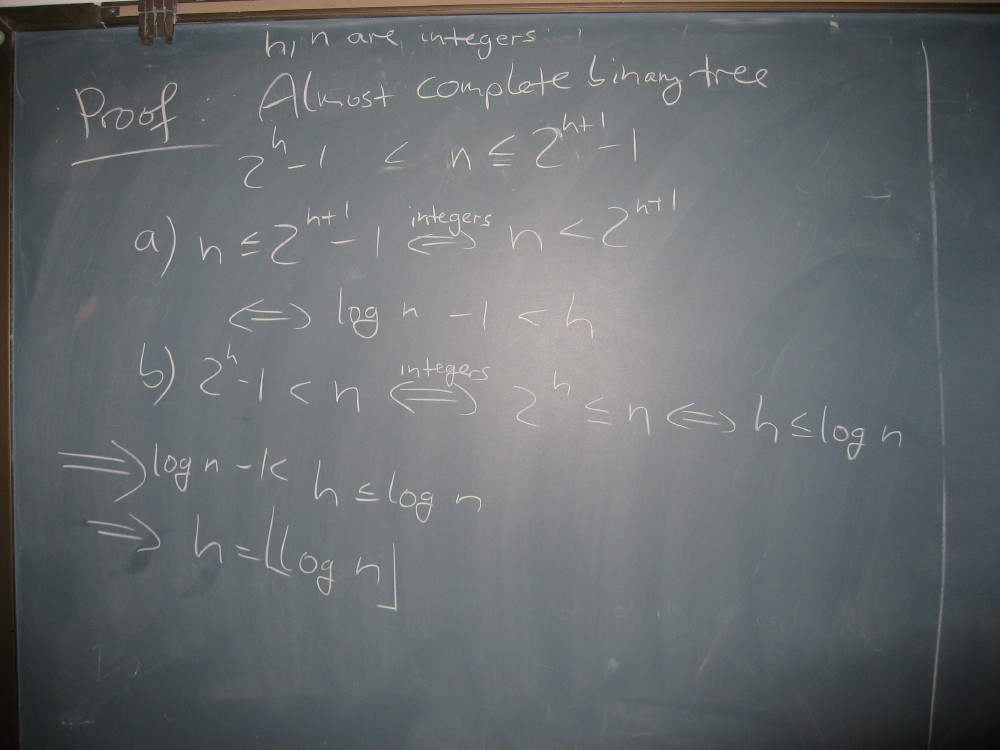 h, n are integers
Proof: Almost complete binary tree
2^h - 1 < n ≤ 2^{h+1} - 1
a) n ≤ 2^{h+1} - 1 ⟺ integers n < 2^{h+1}
⟺ log n - 1 < h
b) 2^h - 1 < n ⟺ integers 2^h ≤ n ⟺ h ≤ log n
⟹ log n - 1 < h ≤ log n
⟹ h = ⌊log n⌋